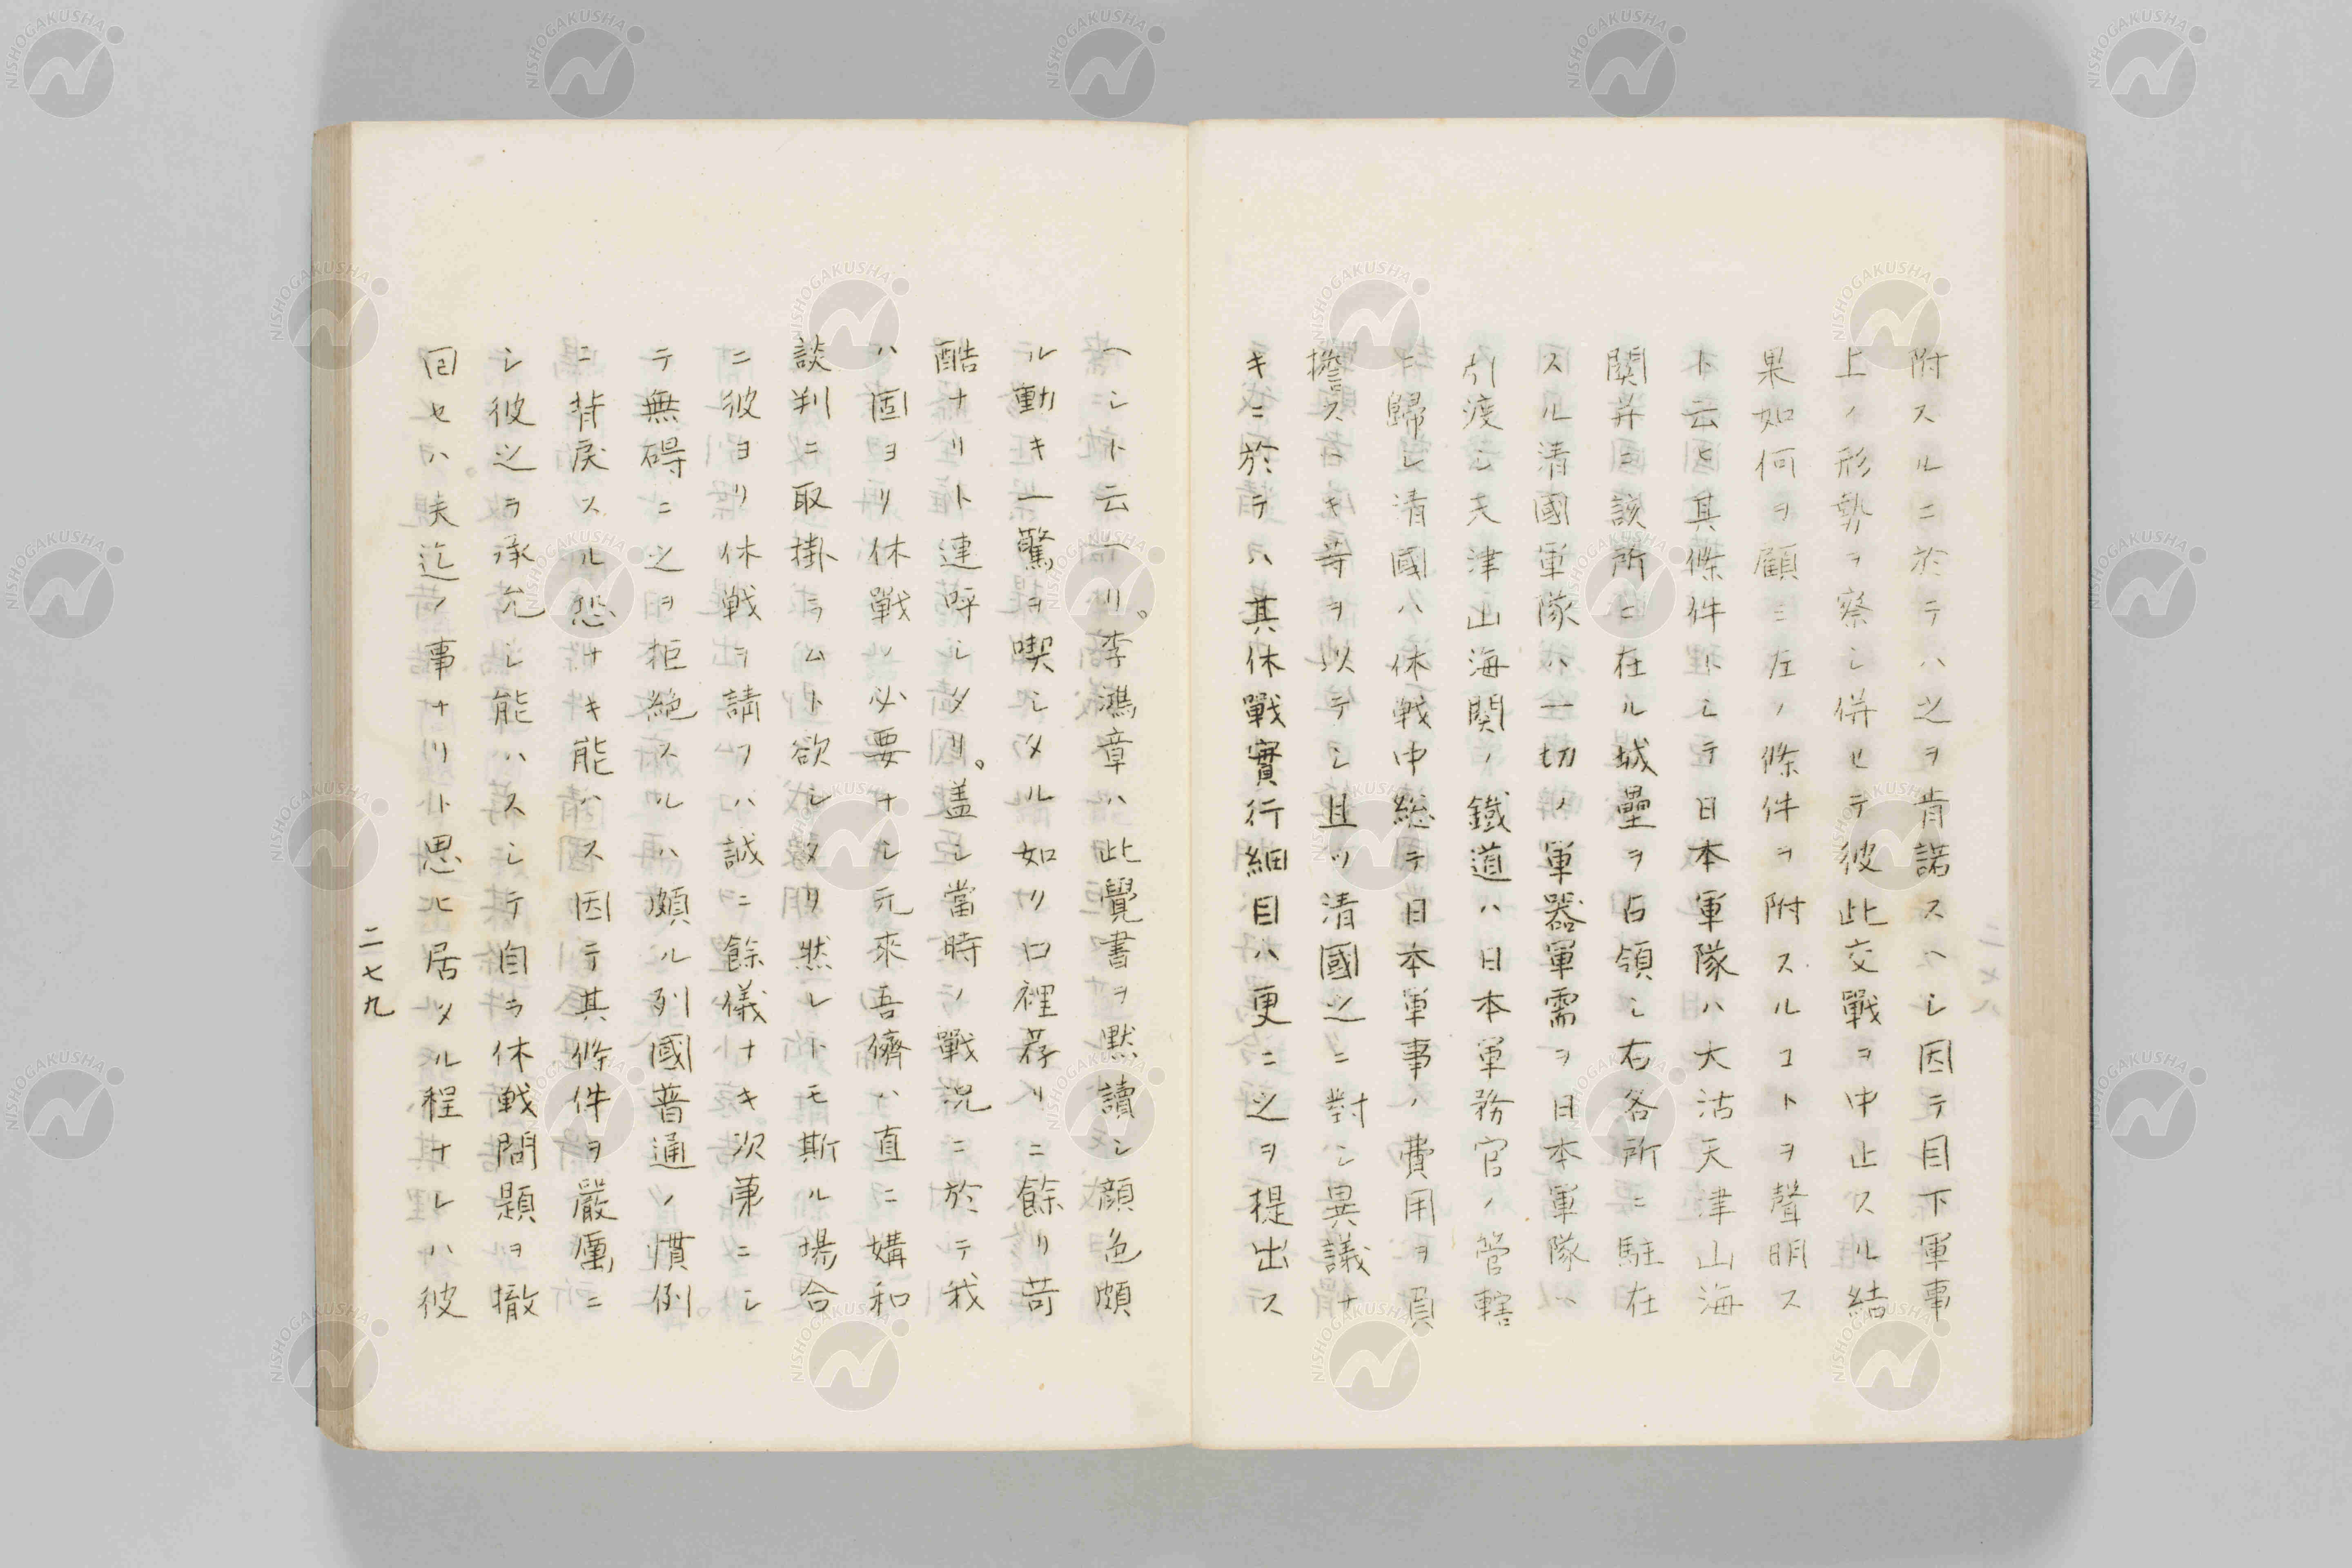 附スルニ於テハ之ヲ肯諾スヘシ因テ目下軍事
上ノ形勢ヲ察シ併セテ彼此交戰ヲ中止スル結
果如何ヲ顧ミ左ノ條件ヲ附スルコトヲ聲明ス
ト云ヒ其條件トシテ日本軍隊ハ大沽天津山海
関并ニ該所ニ在ル城壘ヲ占領シ右各所ニ駐在
スル清國軍隊ハ一切ノ軍器軍需ヲ日本軍隊ヘ
引渡シ天津山海関ノ鐵道ハ日本軍務官ノ管轄
ニ歸シ清國ハ休戦中総テ日本軍事ノ費用ヲ負
擔スヘキ等ヲ以テシ且ツ清國之ニ對シ異議ナ
キニ於テハ其休戰實行細目ハ更ニ之ヲ提出ス
ヘシト云ヘリ。李鴻章ハ此覺書ヲ黙讀シ顔色頗
ル動キ一驚ヲ喫シタル如リ口裡荐リニ餘リ苛
酷ナリト連呼シタリ。盖シ當時ノ戰况ニ於テ我
ハ固ヨリ休戰ノ必要ナシ元來吾儕ハ直ニ媾和
談判ニ取掛ラムト欲シタリ然レトモ斯ル場合
ニ彼ヨリ休戦ヲ請フハ誠ニ餘儀ナキ次苐ニシ
テ無碍ニ之ヲ拒絶スルハ頗ル列國普通ノ慣例
ニ背戻スル恐ナキ能ハス因テ其條件ヲ嚴厲ニ
シ彼之ヲ承允シ能ハスシテ自ラ休戦問題ヲ撤
回セハ。夫迄ノ事ナリト思ヒ居タル程ナレハ彼
二七九
NISHOGAKUSHA